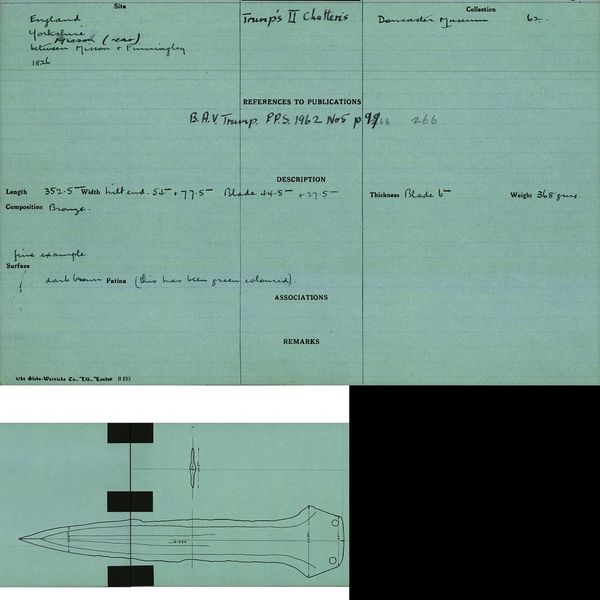 Site
England
Yorkshire
Misson (near)
between Misson + Finningley
1826
Trump's II Chatteris
Collection
Doncaster Museum 62.
REFERENCES TO PUBLICATIONS
B.A.V. Trump. P.P.S. 1962 No5 p 99 266
DESCRIPTION
Length 352.5 Width hilt end. 54 + 77.5 Blade 44.5 + 27.5
Thickness Blade 6
Weight 368 gms.
Composition Bronze.
fine example
Surface
dark brown Patina (this has been green coloured).
ASSOCIATIONS
REMARKS
The Globe-Wernicke Co., Ltd., London B 253